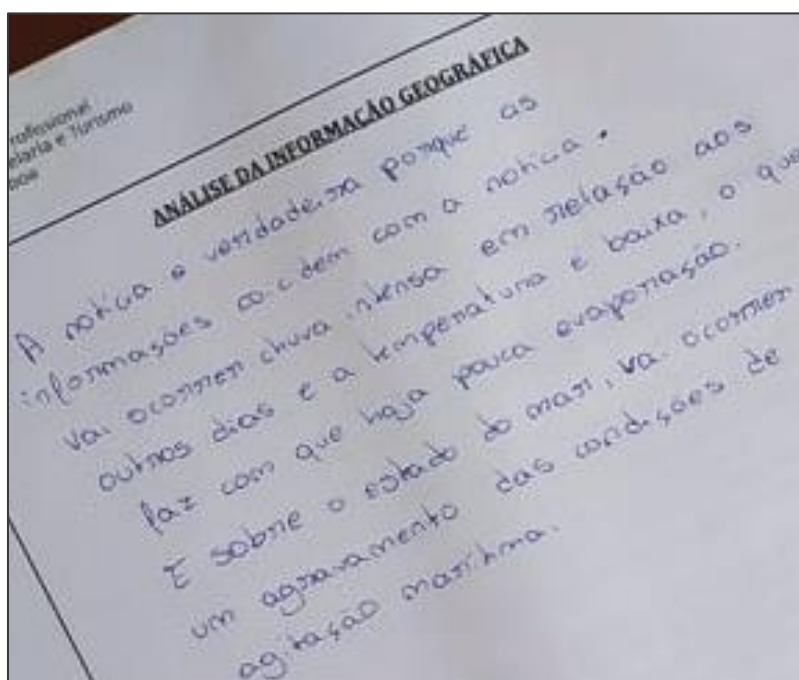 rofissional
elaria e Turismo
boa
ANÁLISE DA INFORMAÇÃO GEOGRÁFICA
A notícia e verdadeira porque as
informações co-cidem com a notícia.
Vai ocorrer chuva intensa em relação aos
outros dias e a temperatura e baixa, o que
faz com que haja pouca evaporação.
E sobre o estado do mar, vai ocorrer
um agravamento das condições de
agitação marítima.